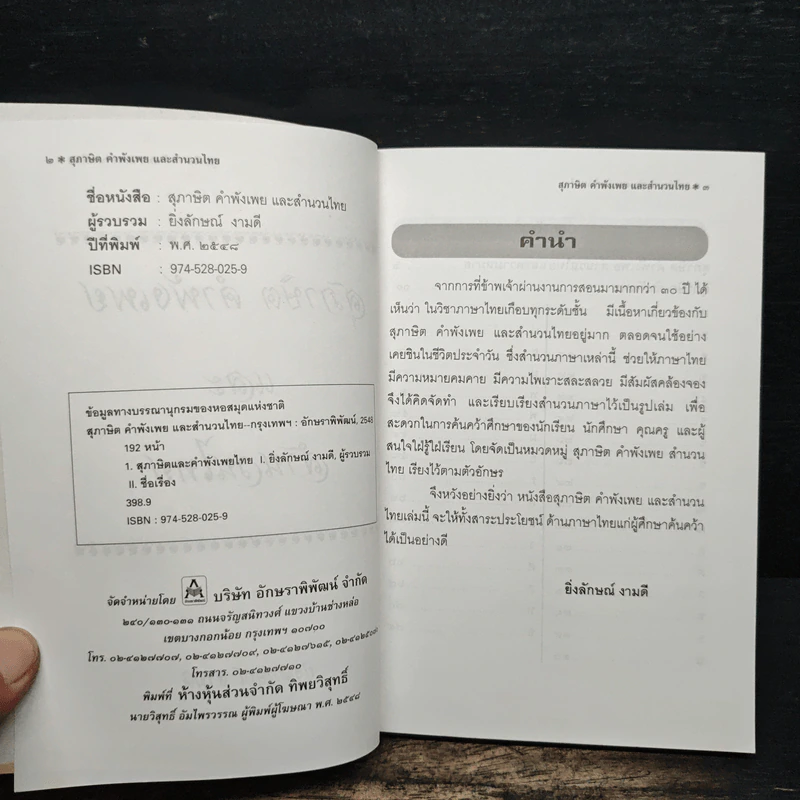 ๒ * สุภาษิต คำพังเพย และสำนวนไทย
ชื่อหนังสือ : สุภาษิต คำพังเพย และสำนวนไทย
ผู้รวบรวม : ยิ่งลักษณ์ งามดี
ปีที่พิมพ์ : พ.ศ. ๒๕๔๘
ISBN : 974-528-025-9
ข้อมูลทางบรรณานุกรมของหอสมุดแห่งชาติ
สุภาษิต คำพังเพย และสำนวนไทย--กรุงเทพฯ : อักษราพิพัฒน์, 2548
192 หน้า
1. สุภาษิตและคำพังเพยไทย I. ยิ่งลักษณ์ งามดี, ผู้รวบรวม
II. ชื่อเรื่อง
398.9
ISBN : 974-528-025-9
จัดจำหน่ายโดย บริษัท อักษราพิพัฒน์ จำกัด
๒๔๐/๑๓๐-๑๓๑ ถนนจรัญสนิทวงศ์ แขวงบ้านช่างหล่อ
เขตบางกอกน้อย กรุงเทพฯ ๑๐๗๐๐
โทร. ๐๒-๔๑๒๗๗๐๗, ๐๒-๔๑๒๗๗๐๙, ๐๒-๔๑๒๗๖๑๕,
โทรสาร. ๐๒-๔๑๒๗๗๑๐
พิมพ์ที่ ห้างหุ้นส่วนจำกัด ทิพยวิสุทธิ์
นายวิสุทธิ์ อัมไพรวรรณ ผู้พิมพ์ผู้โฆษณา พ.ศ. ๒๕๔๘
สุภาษิต คำพังเพย และสำนวนไทย * ๓
คำนำ
จากการที่ข้าพเจ้าผ่านงานการสอนมามากกว่า ๓๐ ปี ได้
เห็นว่า ในวิชาภาษาไทยเกือบทุกระดับชั้น มีเนื้อหาเกี่ยวข้องกับ
สุภาษิต คำพังเพย และสำนวนไทยอยู่มาก ตลอดจนใช้อย่าง
เคยชินในชีวิตประจำวัน ซึ่งสำนวนภาษาเหล่านี้ ช่วยให้ภาษาไทย
มีความหมายคมคาย มีความไพเราะสละสลวย มีสัมผัสคล้องจอง
จึงได้คิดจัดทำ และเรียบเรียงสำนวนภาษาไว้เป็นรูปเล่ม เพื่อ
สะดวกในการค้นคว้าศึกษาของนักเรียน นักศึกษา คุณครู และผู้
สนใจใฝ่รู้ใฝ่เรียน โดยจัดเป็นหมวดหมู่ สุภาษิต คำพังเพย สำนวน
ไทย เรียงไว้ตามตัวอักษร
จึงหวังอย่างยิ่งว่า หนังสือสุภาษิต คำพังเพย และสำนวน
ไทยเล่มนี้ จะให้ทั้งสาระประโยชน์ ด้านภาษาไทยแก่ผู้ศึกษาค้นคว้า
ได้เป็นอย่างดี
ยิ่งลักษณ์ งามดี